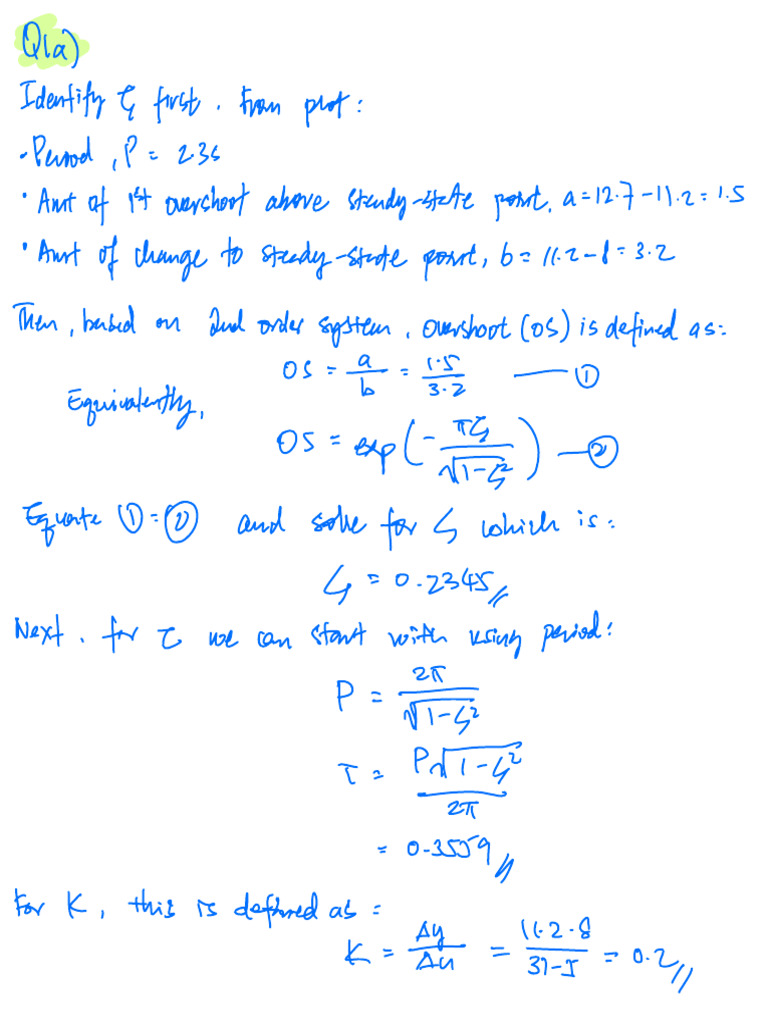 Q1a)
Identify ζ first. From plot:
• Period, P = 2.3s
• Amt of 1st overshoot above steady-state point, a = 12.7 - 11.2 = 1.5
• Amt of change to steady-state point, b = 11.2 - 8 = 3.2
Then, based on 2nd order system, overshoot (OS) is defined as:
OS = a/b = 1.5/3.2 —— ①
Equivalently,
OS = exp(- πζ/√(1-ζ²)) — ②
Equate ① = ② and solve for ζ which is:
ζ = 0.2345
Next, for τ we can start with using period:
P = 2π/√(1-ζ²)
τ = P√(1-ζ²)/2π
= 0.3559
For K, this is defined as:
K = Δy/Δu = 11.2-8/31-5 = 0.2